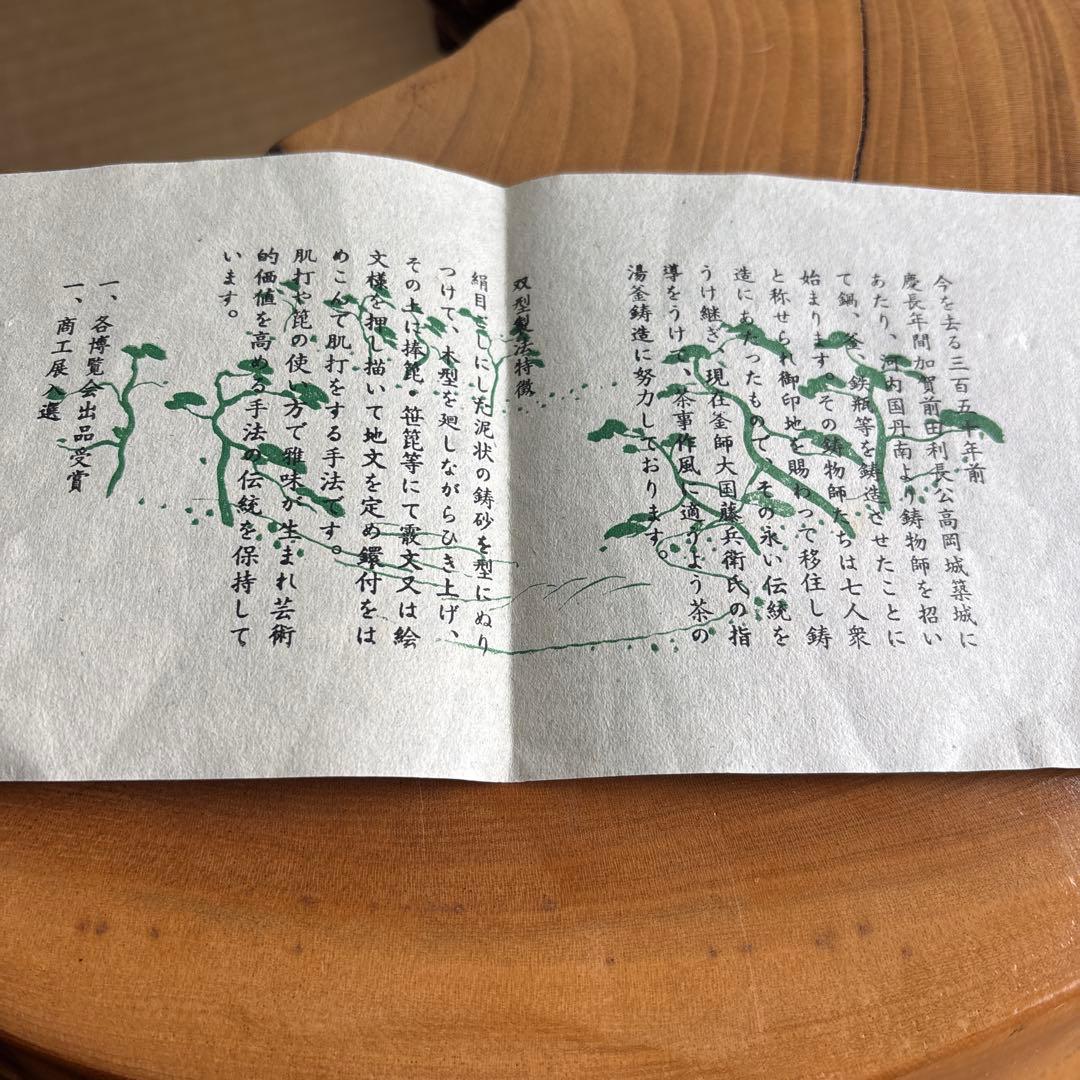 今を去る三百五十年前
慶長年間加賀前田利長公高岡城築城に
あたり、河内国丹南より鋳物師を招い
て鍋、釜、鉄瓶等を鋳造させたことに
始まります。その鋳物師たちは七人衆
と称せられ御印地を賜わって移住し鋳
造にあたったもので、その永い伝統を
うけ継ぎ、現在釜師大国藤兵衛氏の指
導をうけて、茶事作風に適うよう茶の
湯釜鋳造に努力しております。
双型製法特徴
絹目ごしにした泥状の鋳砂を型にぬり
つけて、木型を廻しながらひき上げ、
その上に捧箆・笹箆等にて霰文又は絵
文様を押し描いて地文を定め鐶付をは
めこんで肌打をする手法です。
肌打や箆の使い方で雅味が生まれ芸術
的価値を高める手法の伝統を保持して
います。
一、各博覧会出品受賞
一、商工展入選